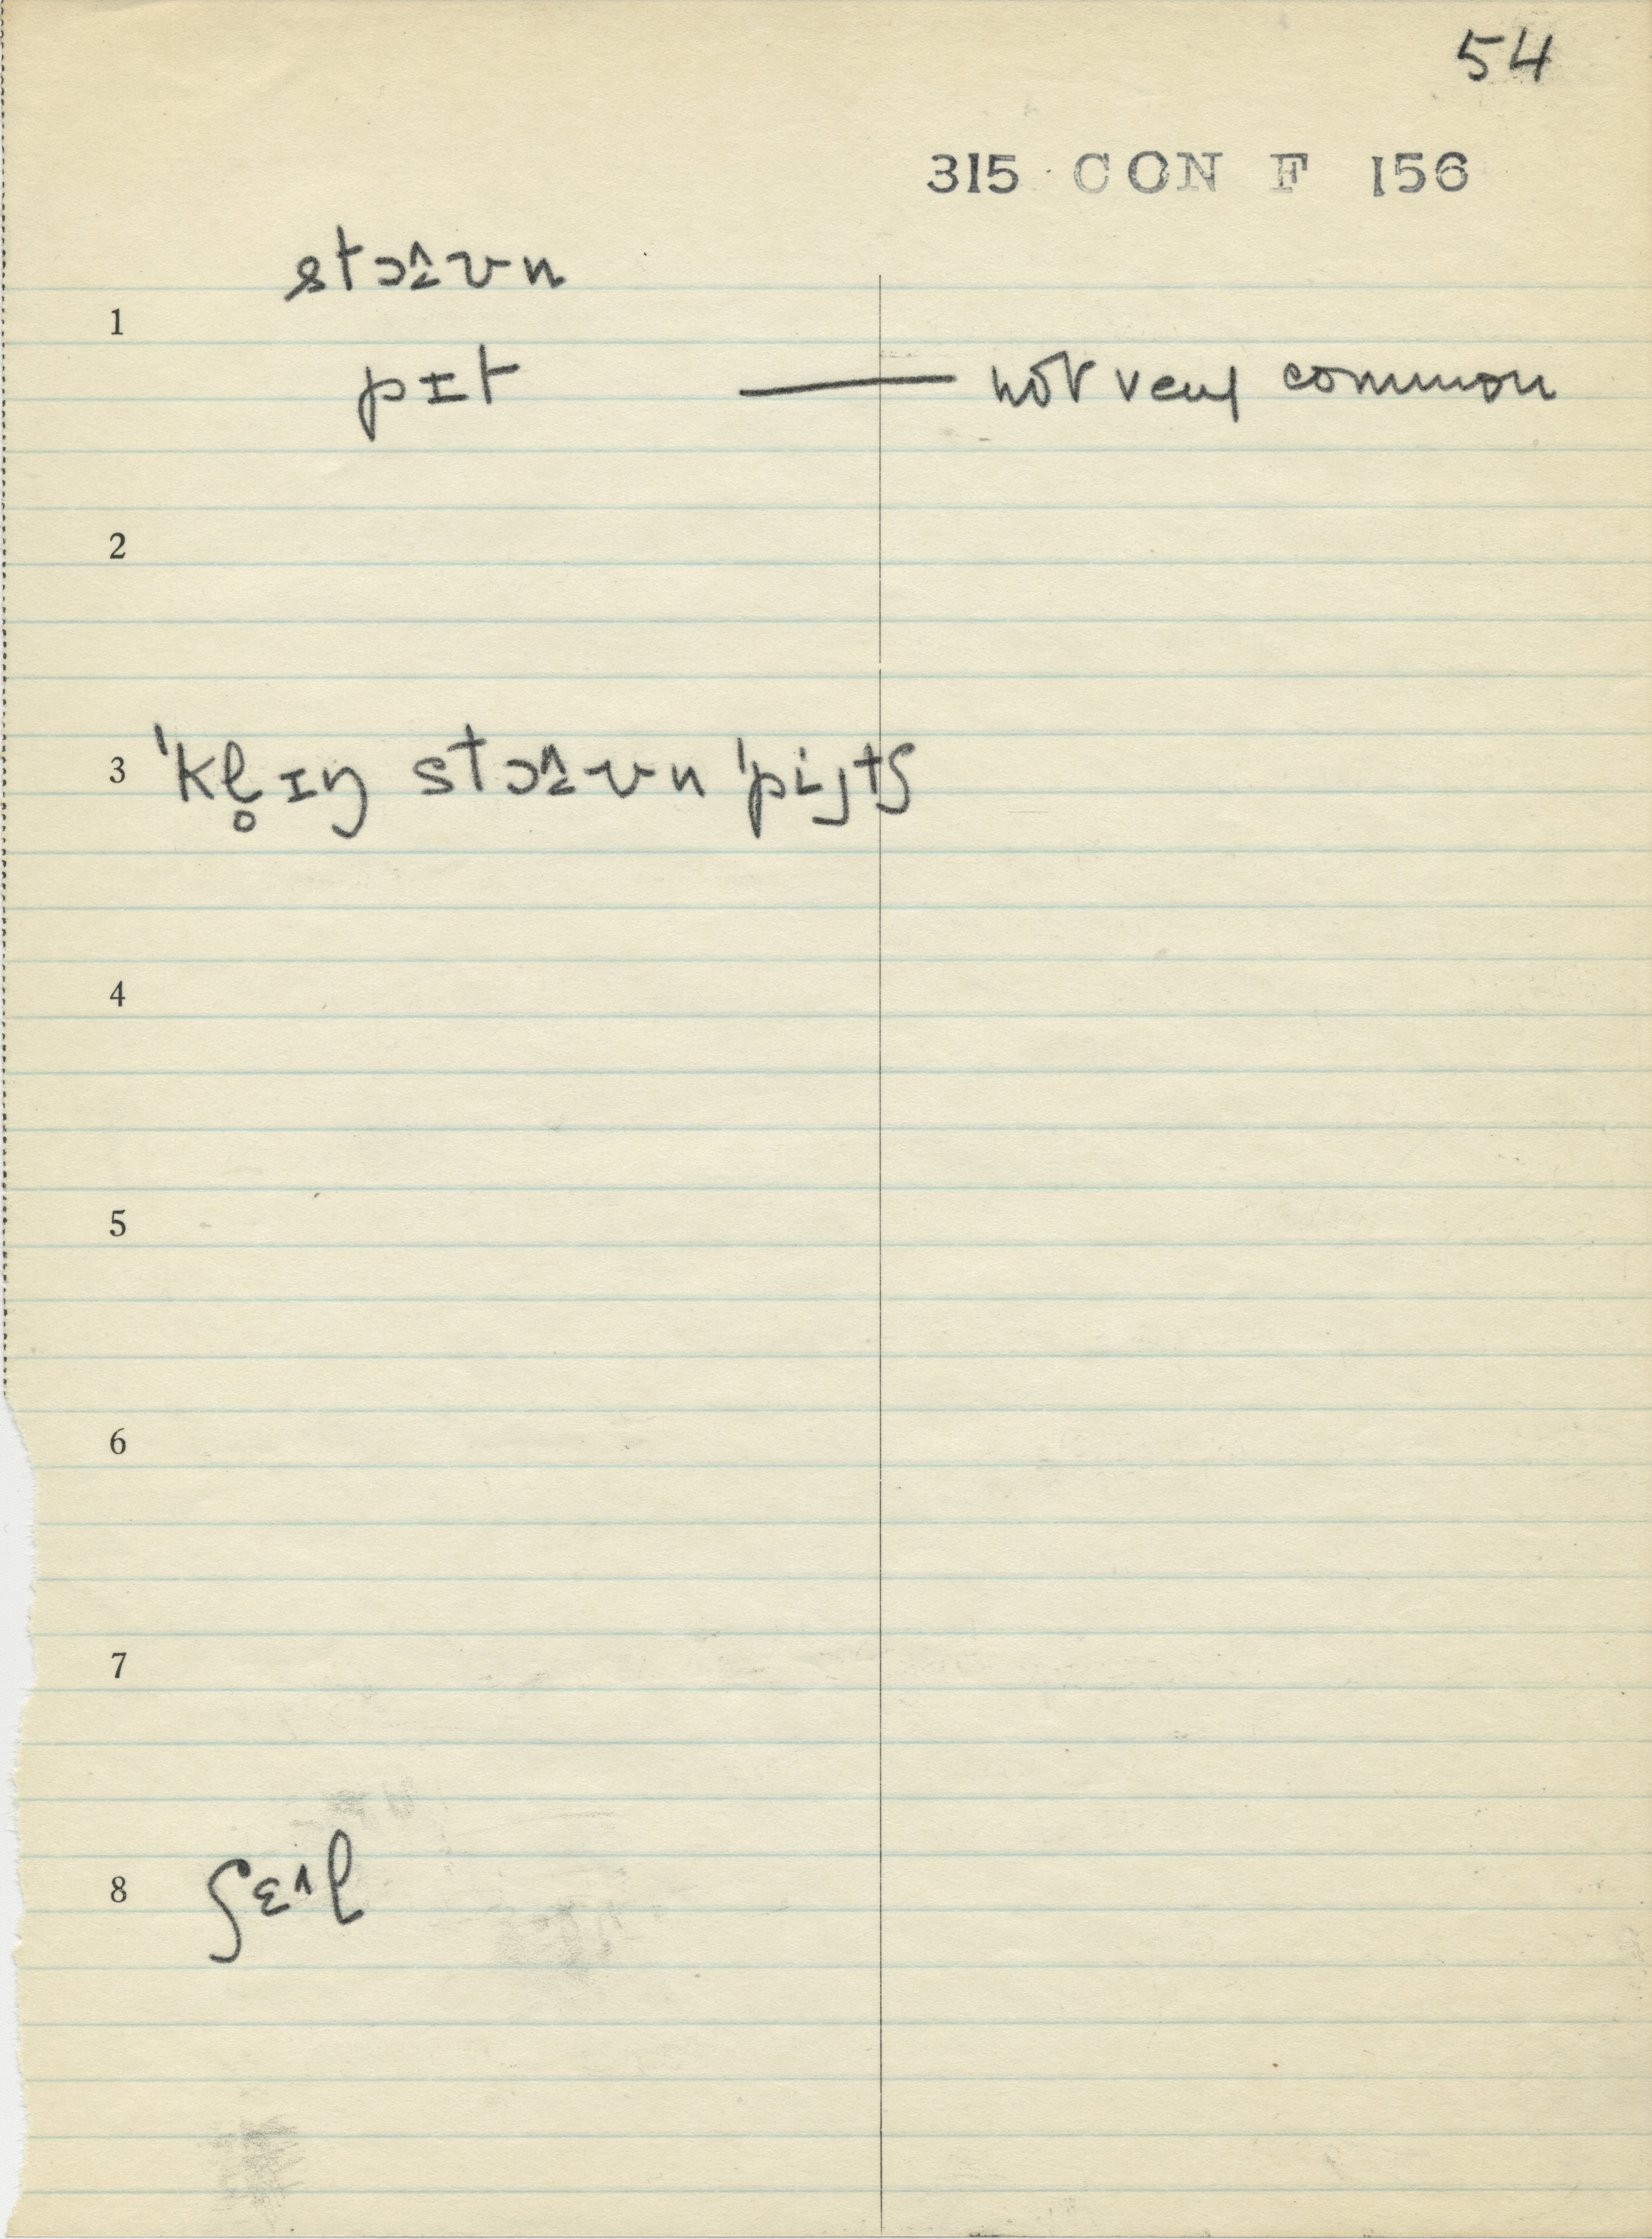 54
315 CON F 156
stɔ^ʊn
1
pɪt — not very common
2
3 ˈkl̥ɪŋ stɔ^ʊn ˈpi˔jtʃ
4
5
6
7
8 ʃɛ˄l